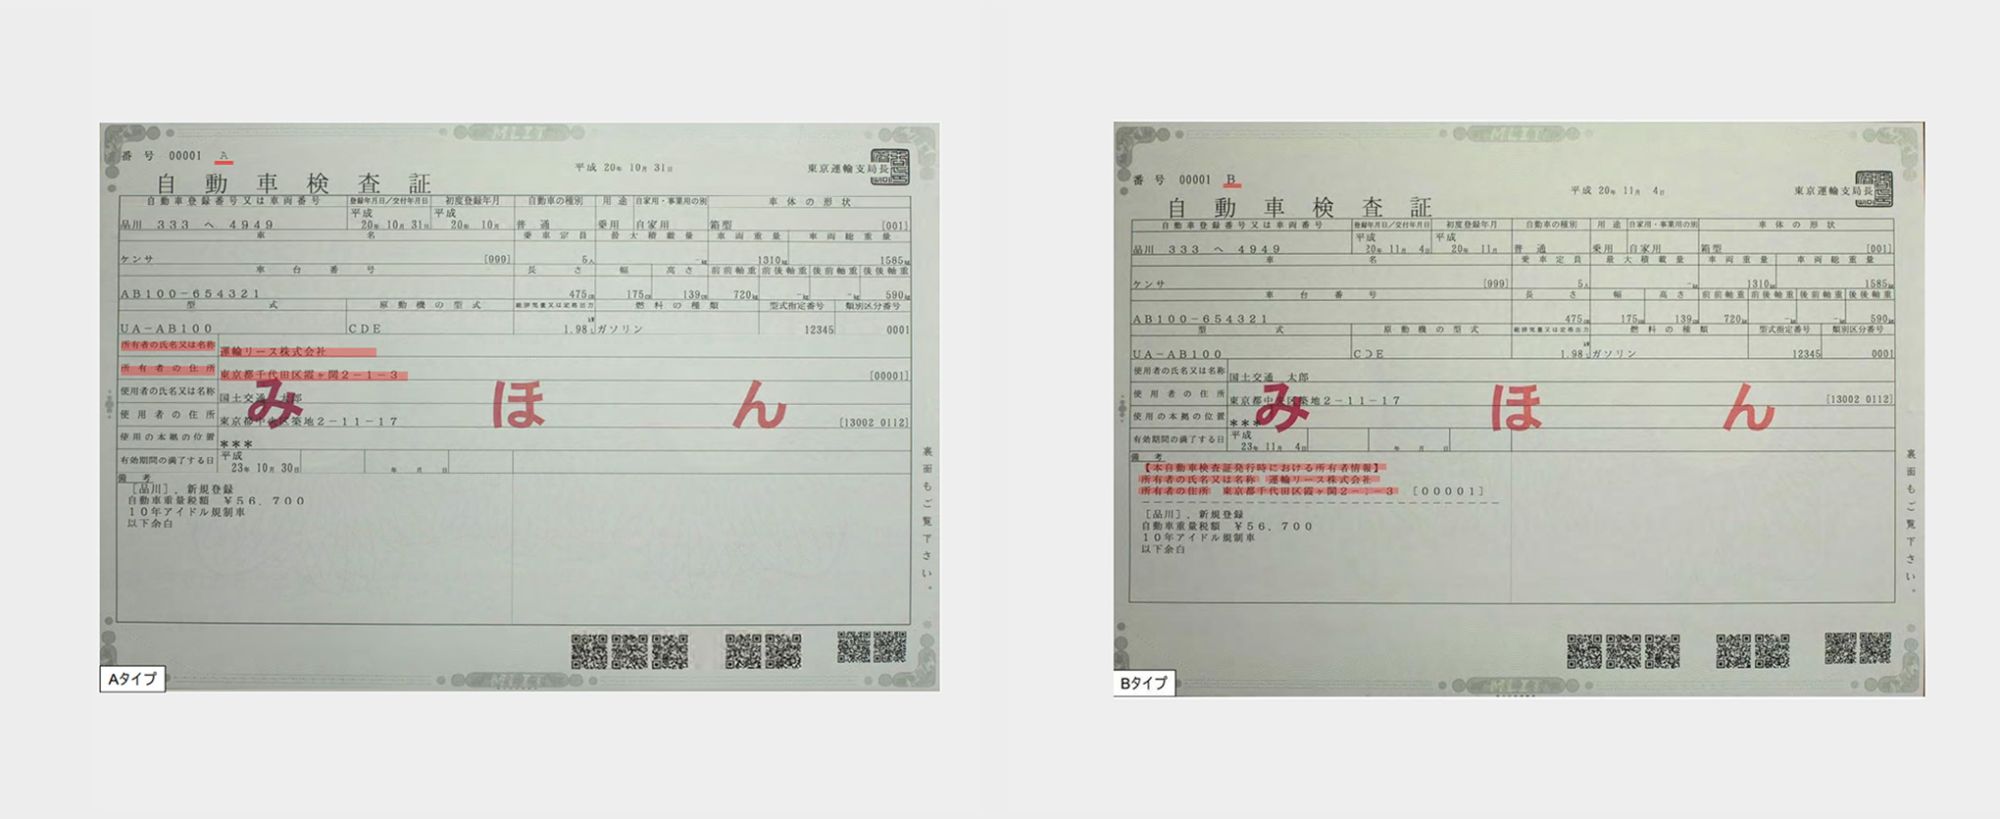 MLIT
番号 00001 A
平成 20年 10月 31日
東京運輸支局長
自動車検査証
自動車登録番号又は車両番号 登録年月日/交付年月日 初度登録年月 自動車の種別 用途 自家用・事業用の別 車体の形状
平成 平成
品川 333 へ 4949 20年 10月 31日 20年 10月 普通 乗用 自家用 箱型 [001]
車名 乗車定員 最大積載量 車両重量 車両総重量
ケンサ [999] 5人 -kg 1310kg 1585kg
車台番号 長さ 幅 高さ 前前軸重 前後軸重 後前軸重 後後軸重
AB100-654321 475cm 175cm 139cm 720kg -kg -kg 590kg
型式 原動機の型式 総排気量又は定格出力 燃料の種類 型式指定番号 類別区分番号
kW
UA-AB100 CDE 1.98L ガソリン 12345 0001
所有者の氏名又は名称 運輸リース株式会社
所有者の住所 東京都千代田区霞ヶ関2-1-3 [00001]
使用者の氏名又は名称 国土交通 太郎
使用者の住所 東京都中央区築地2-11-17 [13002 0112]
みほん
使用の本拠の位置 ***
有効期間の満了する日 平成
23年 10月 30日 年 月 日
備考
[品川], 新規登録
自動車重量税額 ¥56,700
10年アイドル規制車
以下余白
裏面もご覧下さい。
MLIT
Aタイプ
MLIT
番号 00001 B
平成 20年 11月 4日
東京運輸支局長
自動車検査証
自動車登録番号又は車両番号 登録年月日/交付年月日 初度登録年月 自動車の種別 用途 自家用・事業用の別 車体の形状
平成 平成
品川 333 へ 4949 20年 11月 4日 20年 11月 普通 乗用 自家用 箱型 [001]
車名 乗車定員 最大積載量 車両重量 車両総重量
ケンサ [999] 5人 -kg 1310kg 1585kg
車台番号 長さ 幅 高さ 前前軸重 前後軸重 後前軸重 後後軸重
AB100-654321 475cm 175cm 139cm 720kg -kg -kg 590kg
型式 原動機の型式 総排気量又は定格出力 燃料の種類 型式指定番号 類別区分番号
kW
UA-AB100 CDE 1.98L ガソリン 12345 0001
使用者の氏名又は名称 国土交通 太郎
使用者の住所 東京都中央区築地2-11-17 [13002 0112]
みほん
使用の本拠の位置 ***
有効期間の満了する日 平成
23年 11月 4日 年 月 日
備考
【本自動車検査証発行時における所有者情報】
所有者の氏名又は名称 運輸リース株式会社
所有者の住所 東京都千代田区霞ヶ関2-1-3 [00001]
[品川], 新規登録
自動車重量税額 ¥56,700
10年アイドル規制車
以下余白
裏面もご覧下さい。
MLIT
Bタイプ